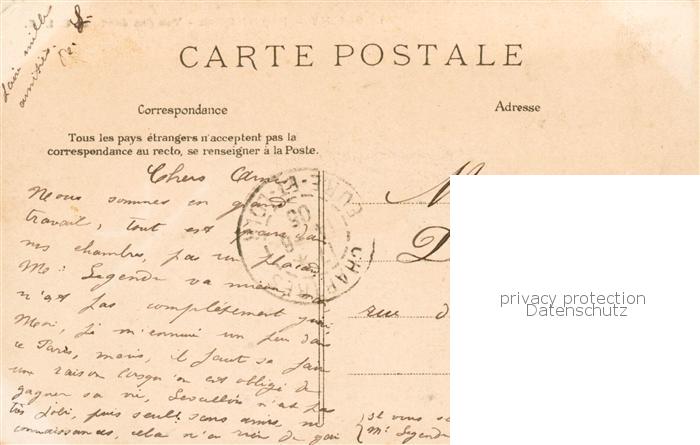 mille
amitiés.
CARTE POSTALE
Correspondance
Adresse
Tous les pays étrangers n'acceptent pas la
correspondance au recto, se renseigner à la Poste.
Chers Amis
Nous sommes en grand
travail, tout est
nos chambres, pas un
Mr: Legendre va mieux mais
n'est pas complètement guéri
Moi, je m'ennuie un peu dans
ce Paris, mais, il faut se faire
une raison lorsqu'on est obligé de
gagner sa vie, n'est pas
très joli, puis seul: sans amis, ni
connaissances, cela n'a rien de gai
M
D
rue d
si vous
Mr Legend
EURE-ET-LOIR
privacy protection
Datenschutz